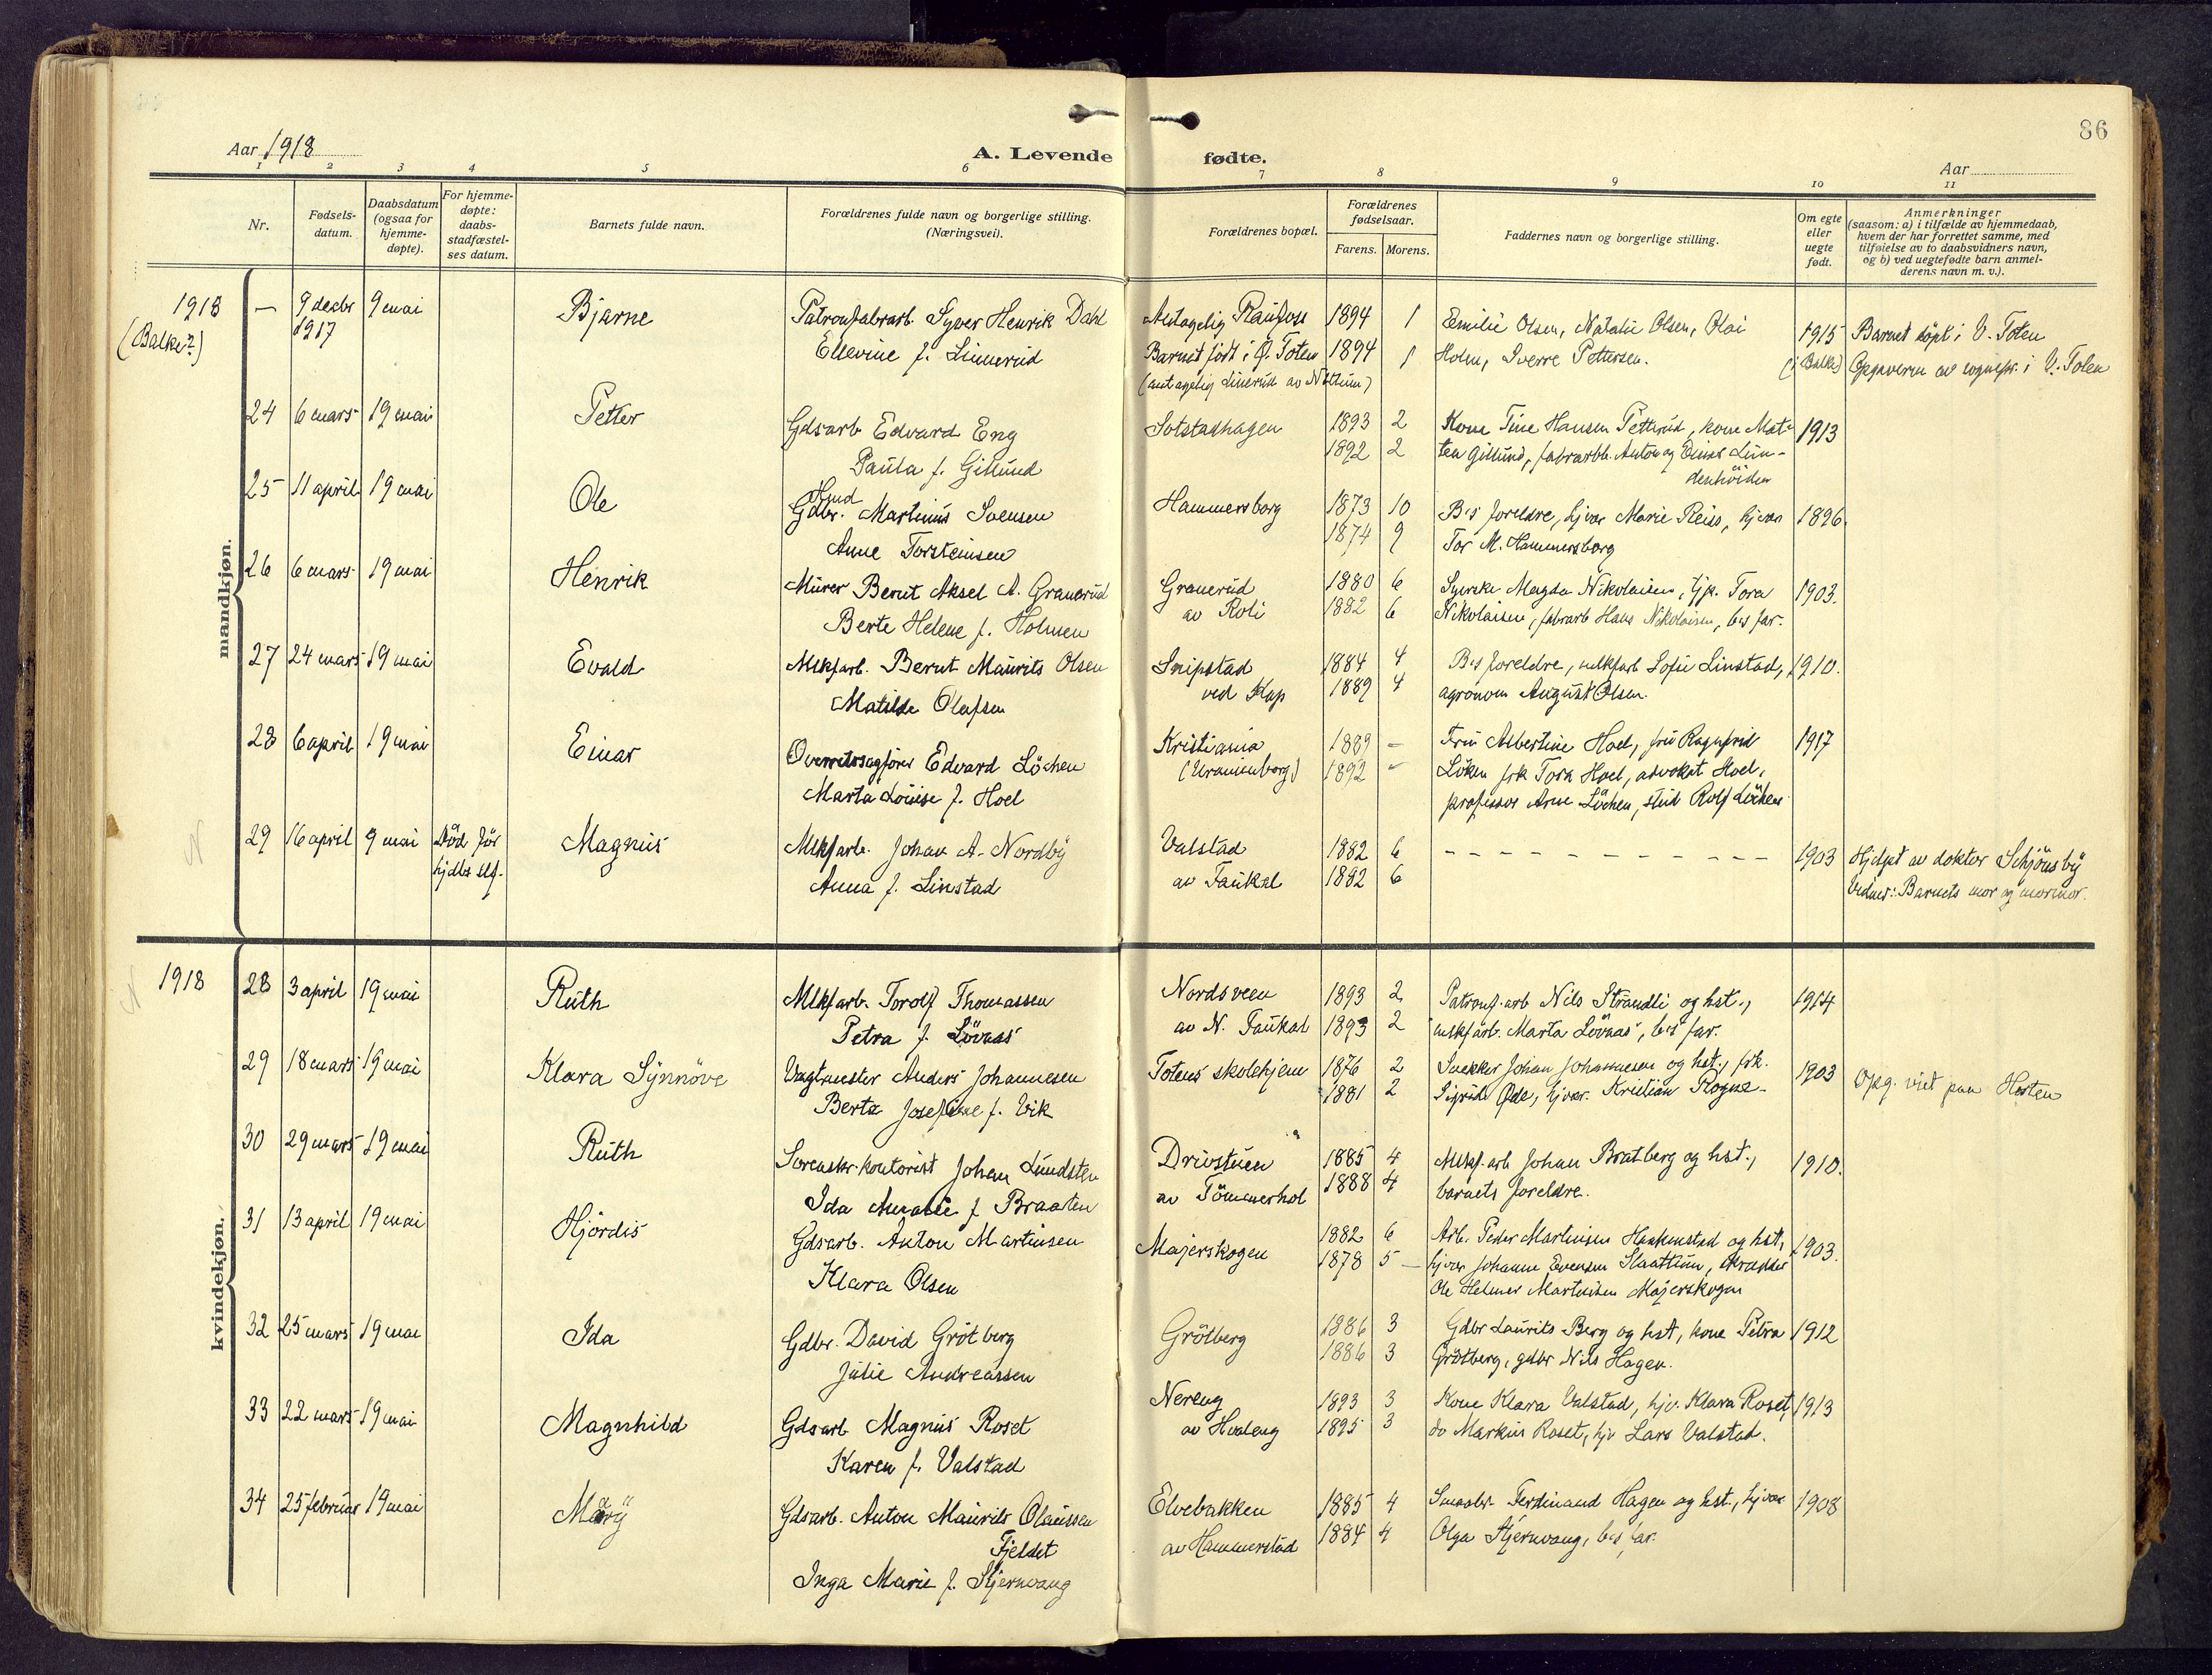 86
Aar 1918
A. Levende fødte.
Aar
1 2 3 4 5 6 7 8 9 10 11
Nr.
Fødselsdatum.
Daabsdatum (ogsaa for hjemmedøpte).
For hjemmedøpte: daabsstadfæstelses datum.
Barnets fulde navn.
Forældrenes fulde navn og borgerlige stilling. (Næringsvei).
Forældrenes bopæl.
Forældrenes fødselsaar.
Farens. Morens.
Faddernes navn og borgerlige stilling.
Om egte eller uegte født.
Anmerkninger
(saasom: a) i tilfælde av hjemmedaab,
hvem der har forrettet samme, med
tilføielse av to daabsvidners navn,
og b) ved uegtefødte barn anmelderens navn m. v.).
mandkjøn.
1918 — 9 decbr 9 mai Bjarne Patronfabrarb. Syver Henrik Dahl Antagelig Raufoss 1894 1 Emilie Olsen, Natalie Olsen, Olai 1915 Barnet döpt i V. Toten
(Balke?) 1917 Ellevine f. Linnerud Barnet födt i Ø. Toten 1894 1 Holen, Sverre Pettersen. (i Balke) Opgaven av sognepr. i V. Toten
(antagelig Linerud av)
24 6 mars 19 mai Petter Gdsarb Edvard Eng Sotstadhagen 1893 2 Kone Tine Hansen Petterud, kone Mat- 1913
Paula f. Gillund 1892 2 tea Gillund, fabrarbb. Anton og Lin-
denhöiden
25 11 april 19 mai Ole Gdbr. Martinius Svensen Hammersborg 1873 10 B's foreldre, hjvær Marie Reiss, hjvær 1896.
Anne Torsteinsen 1874 9 Tor M. Hammersborg
26 6 mars 19 mai Henrik Murer Bernt Aksel A. Granerud Granerud 1880 6 Syerske Magda Nikolaisen, tjp. Tora 1903.
Berte Helene f. Holmen av Roli 1882 6 Nikolaisen, fabrarb Hans Nikolaisen, b's far.
27 24 mars 19 mai Evald Mlkfarb. Bernt Maurits Olsen Snipstad 1884 4 B's foreldre, mlkfarb Sofie Linstad, 1910.
Matilde Olafsen ved Kap 1889 4 agronom August Olsen.
28 6 april 19 mai Einar Overretssagförer Edvard Löchen Kristiania 1889 — Fru Albertine Hoel, fru Ragnfrid 1917
Marta Louise f. Hoel (Uranienborg) 1892 — Löken frk Tora Hoel, advokat Hoel,
professor Arne Löchen, stud Rolf Löchen
29 16 april 9 mai Död för Magnus Mlkfarb. Johan A. Nordby Valstad 1882 6 – – – – – – – – – – – – 1903 Hjdöpt av doktor Schjönsby
hjdbs stf. Anna f. Linstad av Faukal 1882 6 Vidner: Barnets mor og mormor.
kvindekjøn.
1918 28 3 april 19 mai Ruth Mlkfarb. Torolf Thomassen Nordsveen 1893 2 Patronf.arb Nils Strandli og hst., 1914
Petra f. Lövaas av N. Faukal 1893 2 mlkfarb. Marta Lövaas, b's far.
29 18 mars 19 mai Klara Synnöve Vagtmester Anders Johannesen Totens skolehjem 1876 2 Snekker Johan Johannesen og hst., frk. 1903 Opg. vist paa Hosten
Berta Josefine f. Vik 1881 2 Sigrid Öde, hjvær. Kristian Rogne
30 29 mars 19 mai Ruth Sorenskr.kontorist Johan Lundsten Drivstuen 1885 4 Mlkf.arb Johan Bratberg og hst., 1910.
Ida Amalie f Braaten av Tömmerhol 1888 4 barnets foreldre.
31 13 april 19 mai Hjördis Gdsarb. Anton Martinsen Majerskogen 1882 6 Arb. Peder Martinsen Haakenstad og hst, 1903.
Klara Olsen 1878 5 — hjvær Johanne Evensen Slaattum,
Ole Helmer Martinsen Majerskogen
32 25 mars 19 mai Ida Gdbr. David Grötberg Grötberg 1886 3 Gdbr Laurits Berg og hst, kone Petra 1912
Julie Andreassen 1886 3 Grötberg, gdbr Nils Hagen.
33 22 mars 19 mai Magnhild Gdsarb Magnus Roset Nereng 1893 3 Kone Klara Valstad, hjv. Klara Roset, 1913
Karen f. Valstad av Hvaleng 1895 3 do Markus Roset, hjv Lars Valstad.
34 25 februar 19 mai Mary Gdsarb. Anton Maurits Olaussen Elvebakken 1885 4 Smaabr. Ferdinand Hagen og hst., hjvær. 1908
Fjeldet av Hammerstad 1884 4 Olga Stjernvang, b's far.
Inga Marie f. Stjernvang